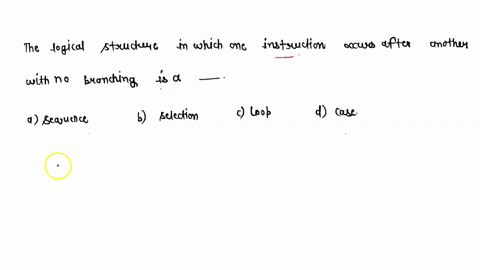 The logical structure in which one instruction occurs after another
with no branching is a ___.
a) sequence b) selection c) loop d) case